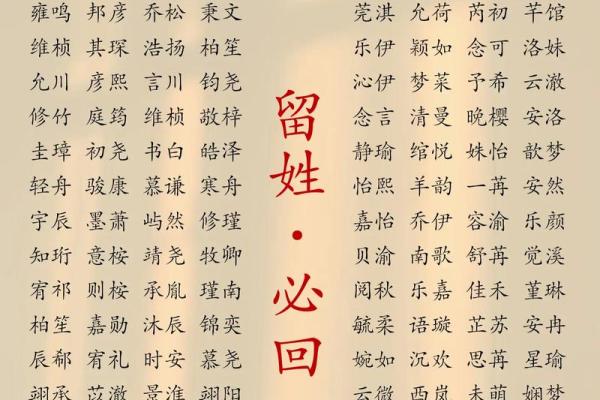 雍鸣 邦彦 乔松 秉文
维桢 其琛 浩扬 柏笙
允川 彦熙 言川 钧尧
修竹 庭筠 维桢 敬梓
圭璋 初尧 书白 皓泽
轻舟 骏康 慕谦 寒舟
宇辰 墨萧 屿然 修瑾
知珩 意桉 靖尧 牧卿
宥祁 则桉 承胤 瑾南
柏笙 嘉勋 沐辰 锦奕
辰郗 宥礼 时安 慕尧
翊承 苡澈 景淮 翊阳
留姓·必回
莞淇 允荷 芮初 芊馆
乐伊 颖如 念可 洛姝
沁伊 梦菜 予希 云澈
念言 清曼 晚樱 安洛
静瑜 绾悦 姝怡 歆梦
怡熙 羊韵 一苒 安然
嘉怡 乔伊 容渝 乐颜
贝渝 南歌 舒苒 觉溪
阅秋 乐嘉 佳禾 堇琳
毓柔 语璇 芷苏 安冉
婉如 沉欢 思苒 星瑜
云微 西岚 未萌 娴梦